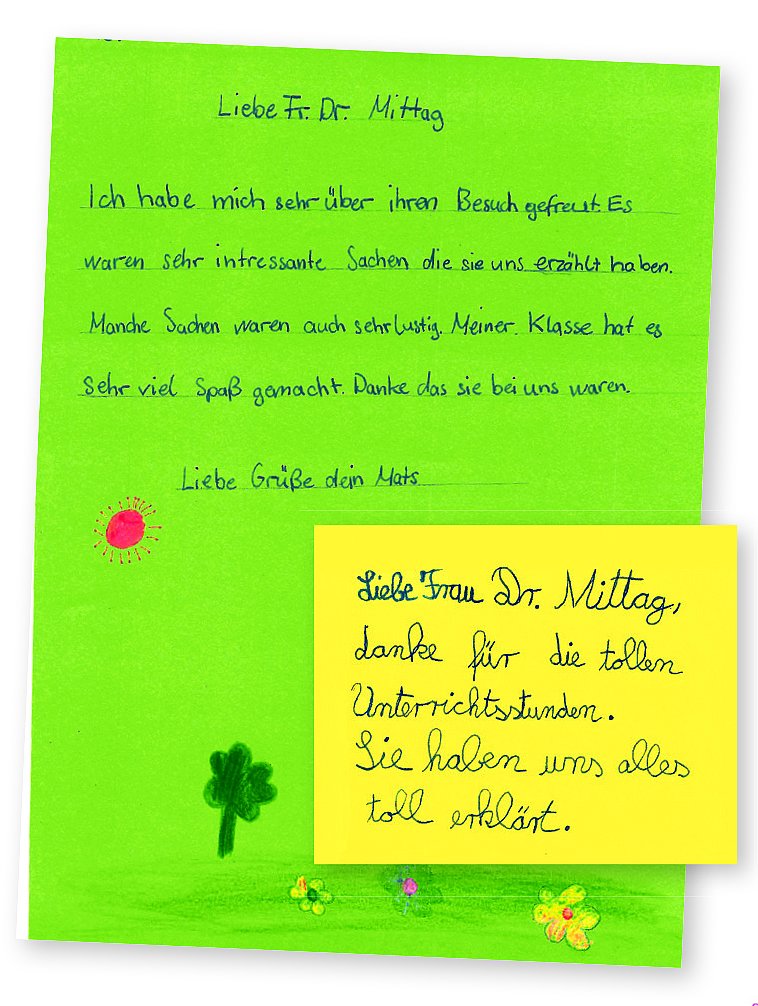 Liebe Fr. Dr. Mittag
Ich habe mich sehr über ihren Besuch gefreut. Es
waren sehr intressante Sachen die sie uns erzählt haben.
Manche Sachen waren auch sehr lustig. Meiner Klasse hat es
Sehr viel Spaß gemacht. Danke das sie bei uns waren.
Liebe Grüße dein Mats
Liebe Frau Dr. Mittag,
danke für die tollen
Unterrichtsstunden.
Sie haben uns alles
toll erklärt.